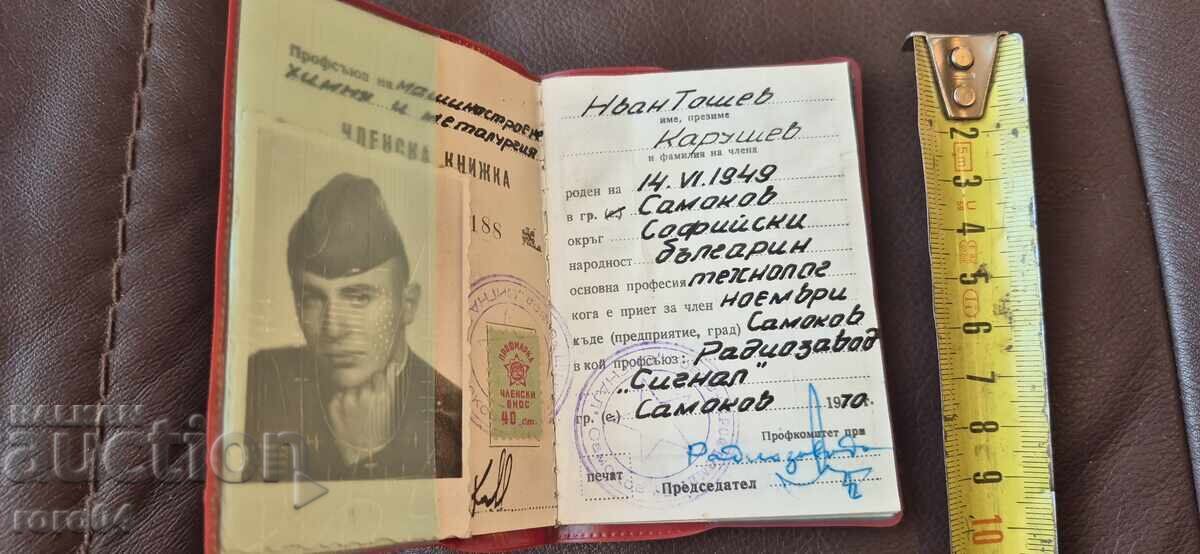 Профсъюз на машиностроене
химия и металургия
ЧЛЕНСКА КНИЖКА
188
ПРОФМАРКА
ЧЛЕНСКИ
ВНОС
40 ст.
Иван Тошев
име, презиме
Карушев
и фамилия на члена
роден на 14.VI.1949
в гр. (с.) Самоков
окръг Софийски
народност българин
основна професия технолог
кога е приет за член ноември
къде (предприятие, град) Самоков
в кой профсъюз: Радиозавод
"Сигнал"
гр. (с.) Самоков 1970 г.
Профкомитет при
Радиозавода
печат
Председател
2
3
4
5
6
7
8
9
10
БАЛКАН
auction
roro64